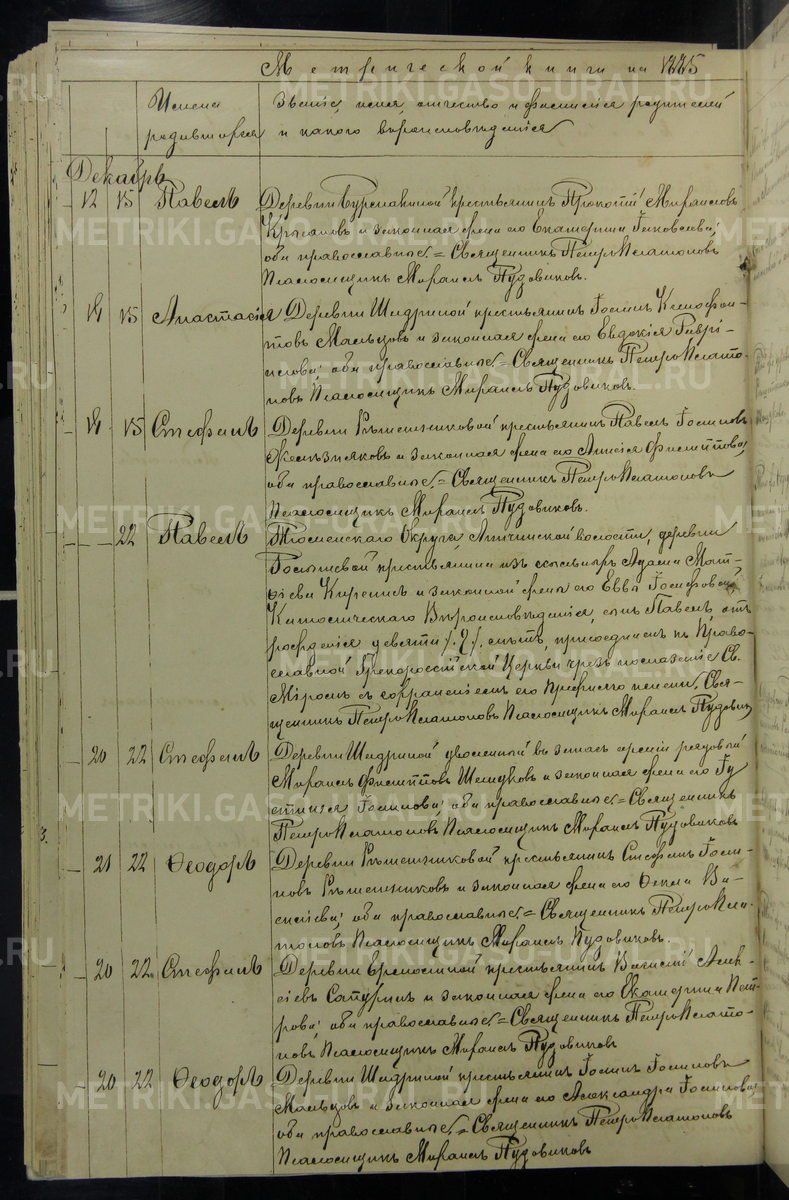 Метрической книги на 1885
Имена родившихся
Званіе, имя, отчество и фамилія родителей
и какого вероисповѣданія
Декабрь
12 15 Павелъ Деревни крестьянинъ Прокопій
и законная жена его Екатерина Іаковлева;
оба православные = Священникъ Петръ Платоновъ
Псаломщикъ Михаилъ Пудовиковъ.
14 15 Анастасія Деревни Шадриной крестьянинъ Іосифъ Ксенофон-
товъ Мальцовъ и законная жена его Евдокія Гаврі-
илова; оба православные = Священникъ Петръ Плато-
новъ Псаломщикъ Михаилъ Пудовиковъ.
14 15 Стефанъ Деревни Рѣшетниковой крестьянинъ Павелъ
Желѣзняковъ и законная жена его Филиппова;
оба православные = Священникъ Петръ Платоновъ
Псаломщикъ Михаилъ Пудовиковъ.
22 Павелъ Тюменскаго Округа, волости, деревни
крестьянина изъ ссыльныхъ Адама Мат-
ѳіева и законной жены его Еввы Іосифовой
Католическаго Вѣроисповѣданія, сынъ Павелъ, отъ
рожденія девяти /.9./ лѣтъ, присоединенъ къ Право-
славной Грекороссійской Церкви чрезъ помазаніе Св.
Міромъ съ сохраненіемъ его прежняго имени. Свя-
щенникъ Петръ Платоновъ Псаломщикъ Михаилъ Пудовик
20 22 Стефанъ Деревни Шадриной уволенный въ запасъ арміи рядовой
Михаилъ Филипповъ и законная жена его Іу
стинія; оба православные = Священникъ
Петръ Платоновъ Псаломщикъ Михаилъ Пудовиковъ
21 22 Ѳеодоръ Деревни Рѣшетниковой крестьянинъ Стефанъ
Рѣшетниковъ и законная жена его Ѳекла Ва-
силіева; оба православные = Священникъ Петръ Пла-
тоновъ Псаломщикъ Михаилъ Пудовиковъ.
20 22 Стефанъ Деревни Ермолиной крестьянинъ Василій Алек-
сіевъ Сапуринъ и законная жена его Екатерина Пет-
рова; оба православные = Священникъ Петръ Плато-
новъ Псаломщикъ Михаилъ Пудовиковъ
20 22 Ѳеодоръ Деревни Шадриной крестьянинъ
Мальцовъ и законная жена его Александра
оба православные = Священникъ Петръ Платоновъ
Псаломщикъ Михаилъ Пудовиковъ
METRIKI.GASO-URAL.RU